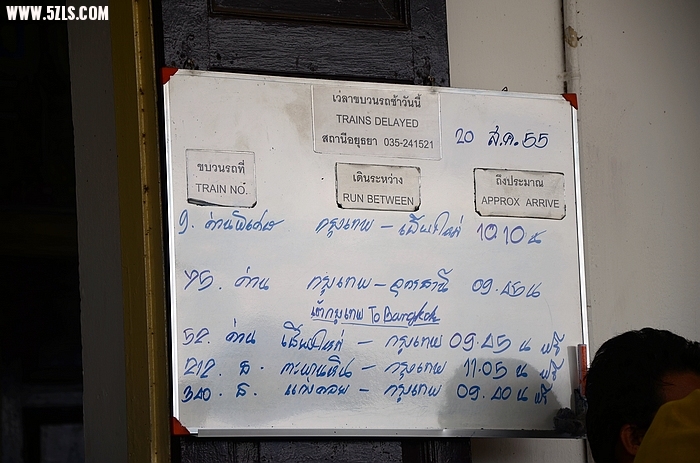 WWW.5ZLS.COM
เวลาขบวนรถช้าวันนี้
TRAINS DELAYED
สถานีอยุธยา 035-241521
20 ส.ค.55
ขบวนรถที่ เดินระหว่าง ถึงประมาณ
TRAIN NO. RUN BETWEEN APPROX ARRIVE
9. ด่วนพิเศษ กรุงเทพ - เชียงใหม่ 10.10 น
75. ด่วน กรุงเทพ - อุดรธานี 09.45 น
เข้ากรุงเทพ To Bangkok
52. ด่วน เชียงใหม่ - กรุงเทพ 09.45 น ฟรี
212. ธ. ตะพานหิน - กรุงเทพ 11.05 น ฟรี
340. ธ. แก่งคอย - กรุงเทพ 09.40 น ฟรี